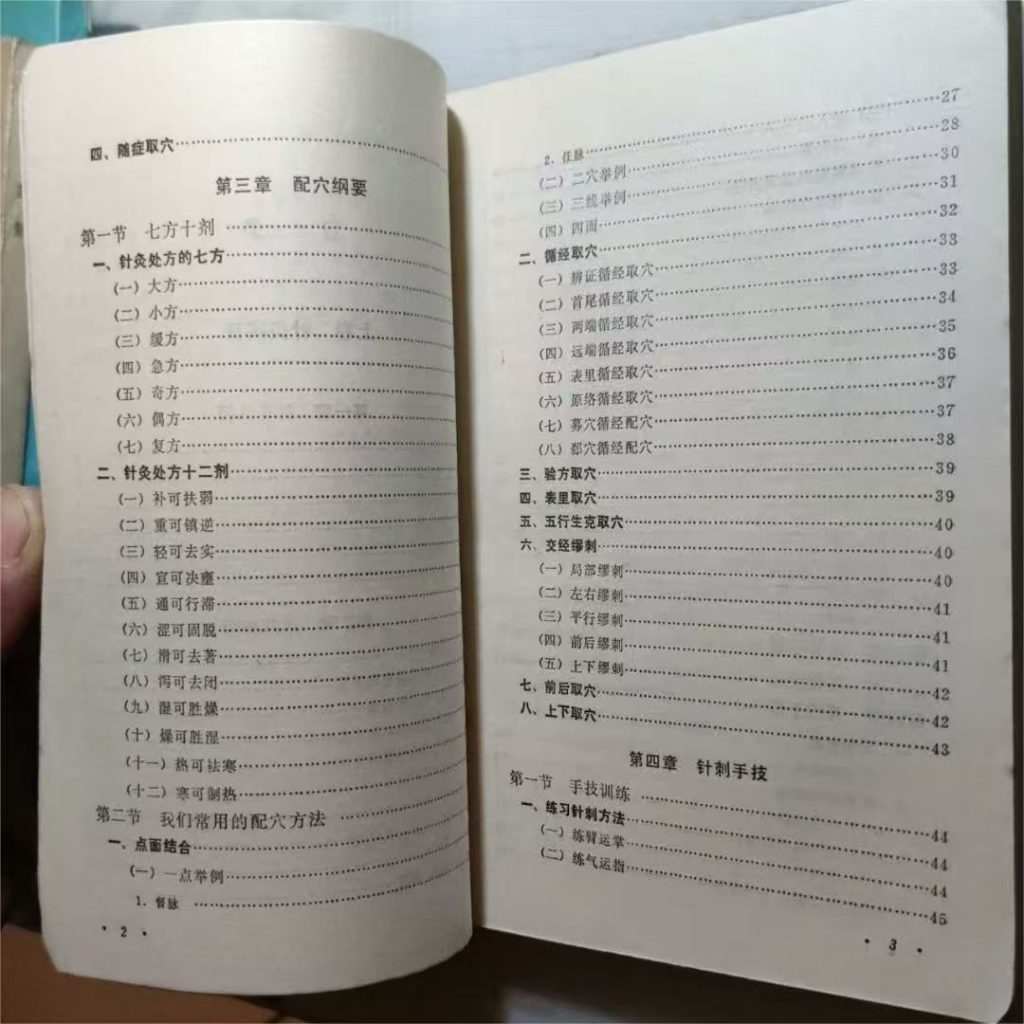 四、随症取穴……
第三章 配穴纲要
第一节 七方十剂……
一、针灸处方的七方……
(一)大方……
(二)小方……
(三)缓方……
(四)急方……
(五)奇方……
(六)偶方……
(七)复方……
二、针灸处方十二剂……
(一)补可扶弱……
(二)重可镇逆……
(三)轻可去实……
(四)宣可决壅……
(五)通可行滞……
(六)涩可固脱……
(七)滑可去著……
(八)泻可去闭……
(九)湿可胜燥……
(十)燥可胜湿……
(十一)热可祛寒……
(十二)寒可制热……
第二节 我们常用的配穴方法……
一、点面结合……
(一)一点举例……
1. 督脉……
· 2 ·
2. 任脉……27
(二)二穴举例……28
(三)三线举例……30
(四)四面……31
二、循经取穴……32
(一)辨证循经取穴……33
(二)首尾循经取穴……33
(三)两端循经取穴……34
(四)远端循经取穴……35
(五)表里循经取穴……36
(六)原络循经取穴……37
(七)募穴循经配穴……37
(八)郄穴循经配穴……38
三、验方取穴……39
四、表里取穴……39
五、五行生克取穴……40
六、交经缪刺……40
(一)局部缪刺……40
(二)左右缪刺……41
(三)平行缪刺……41
(四)前后缪刺……41
(五)上下缪刺……42
七、前后取穴……42
八、上下取穴……43
第四章 针刺手技
第一节 手技训练……44
一、练习针刺方法……44
(一)练臂运掌……44
(二)练气运指……45
· 3 ·